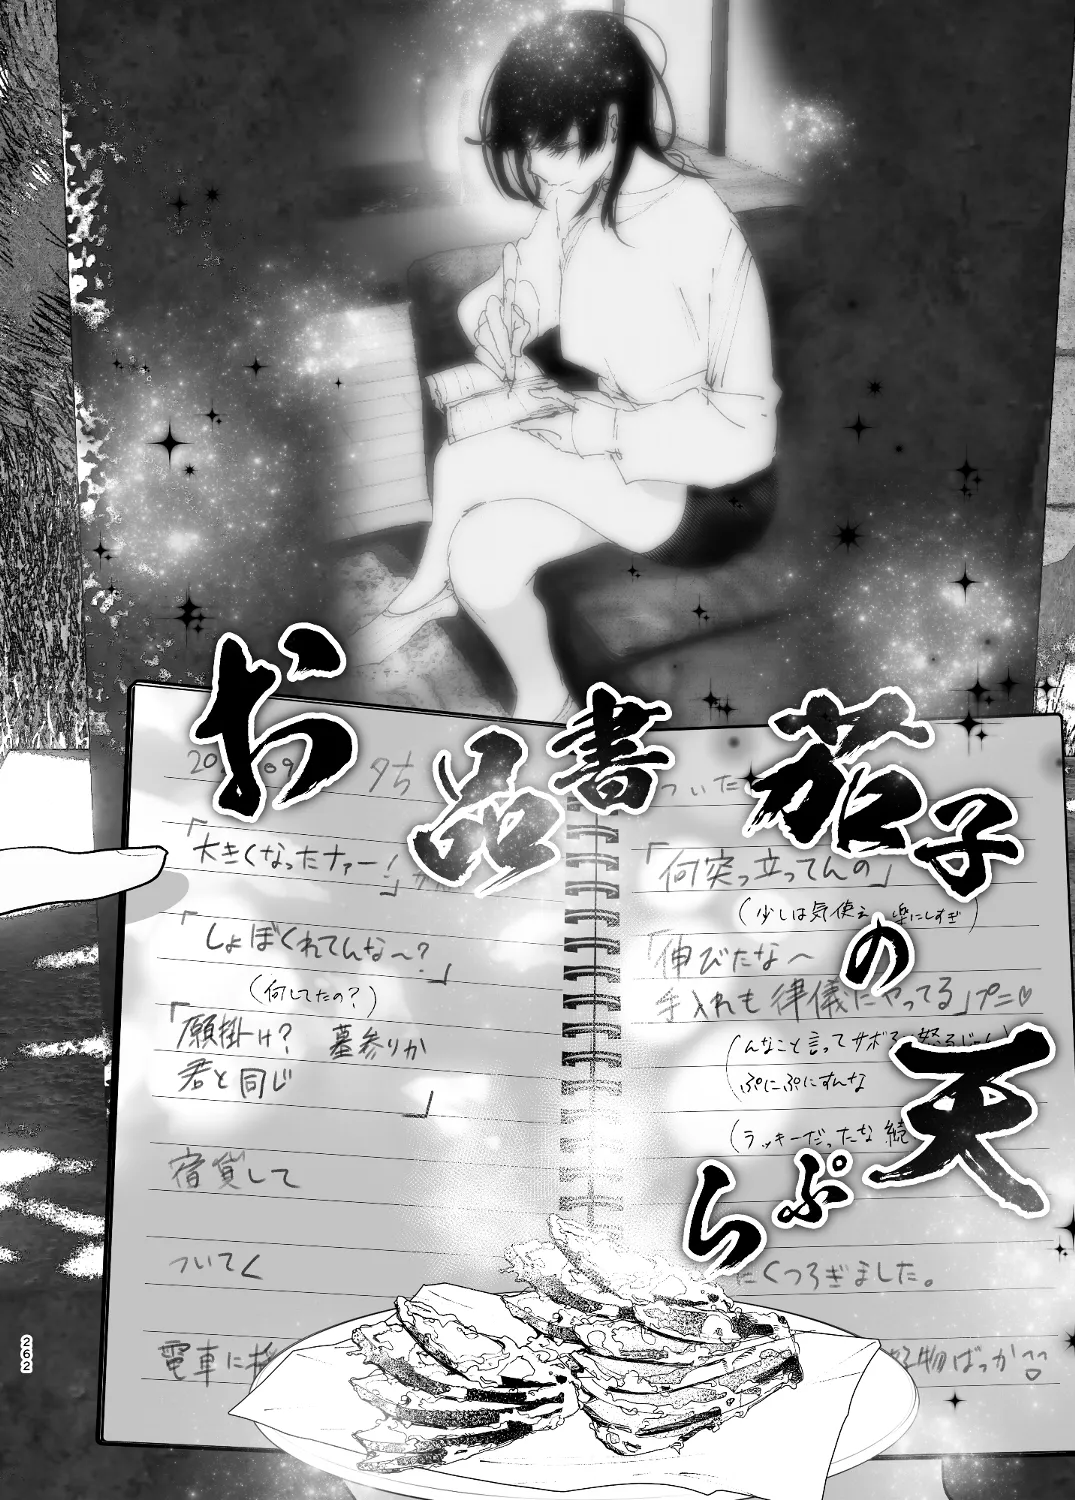 お品書
茄子の天ぷら
夕ち
「大きくなったナァー!」
「しょぼくれてんな〜?」
(何してたの?)
「願掛け? 墓参りか
君と同じ
」
宿貸して
ついてく
電車に
ついた
「何突っ立ってんの」
(少しは気使え 楽にしすぎ)
「伸びたな〜
手入れも律儀にやってる」プニ♡
(んなこと言ってサボる
ぷにぷにすんな
(ラッキーだったな 続
くつろぎました。
物ばっか
262